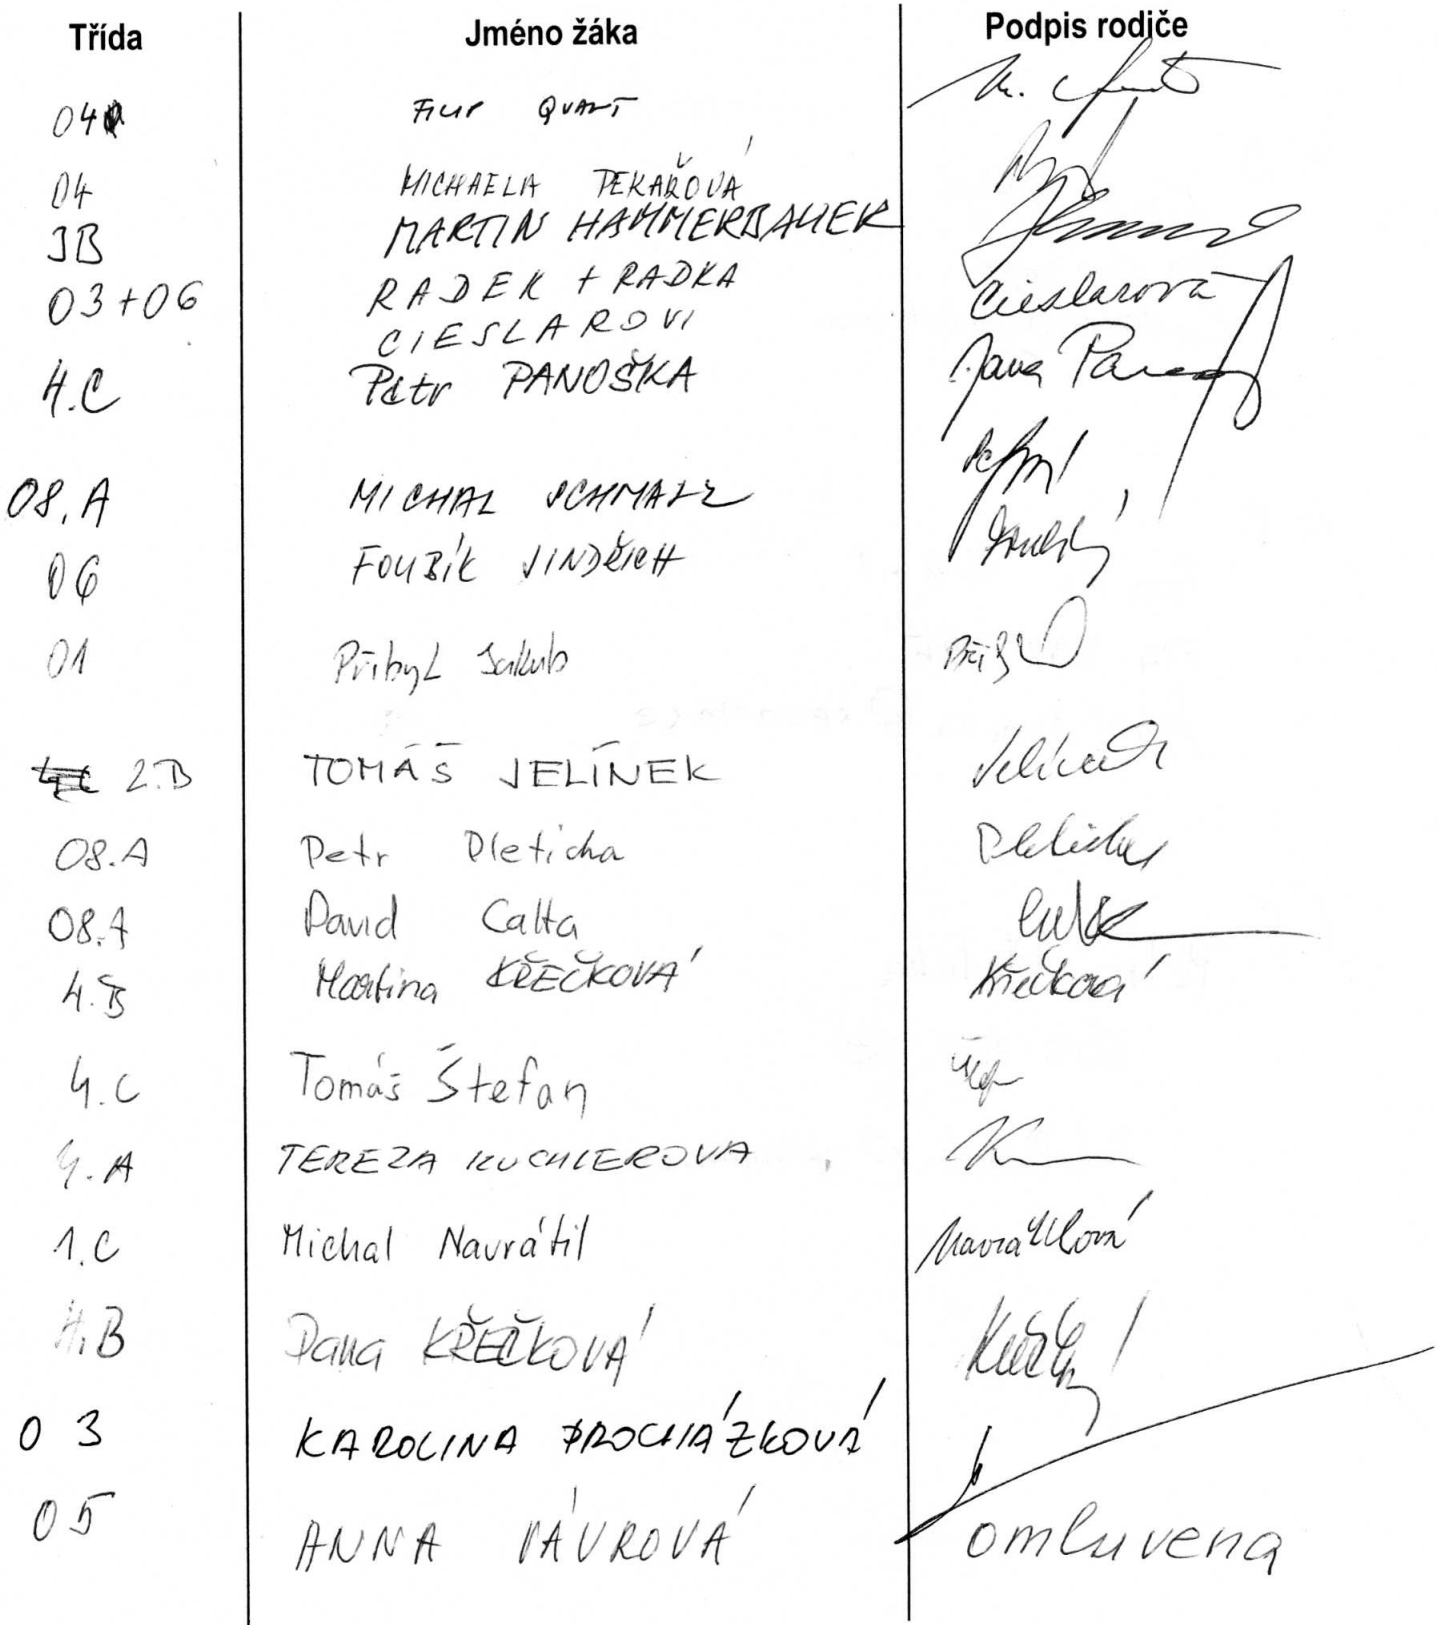 Třída Jméno žáka Podpis rodiče
04 FILIP QUAST
04 MICHAELA PEKAŘOVÁ
3B MARTIN HAMMERBAUER
03+06 RADEK + RADKA Cieslarová
CIESLAROVI
4.C Petr PANOŠKA Jana
08.A MICHAL SCHMALZ
06 FOUBÍK JINDŘICH
01 Přibyl Jakub
2.B TOMÁŠ JELÍNEK
08.A Petr Pleticha
08.A David Calta
4.B Martina KŘEČKOVÁ Křečková
4.C Tomáš Štefan
4.A TEREZA KUCHLEROVA
1.C Michal Navrátil Navrátilová
4.B Dana KŘEČKOVÁ
03 KAROLINA PROCHÁZKOVÁ
05 ANNA VÁVROVÁ omluvena